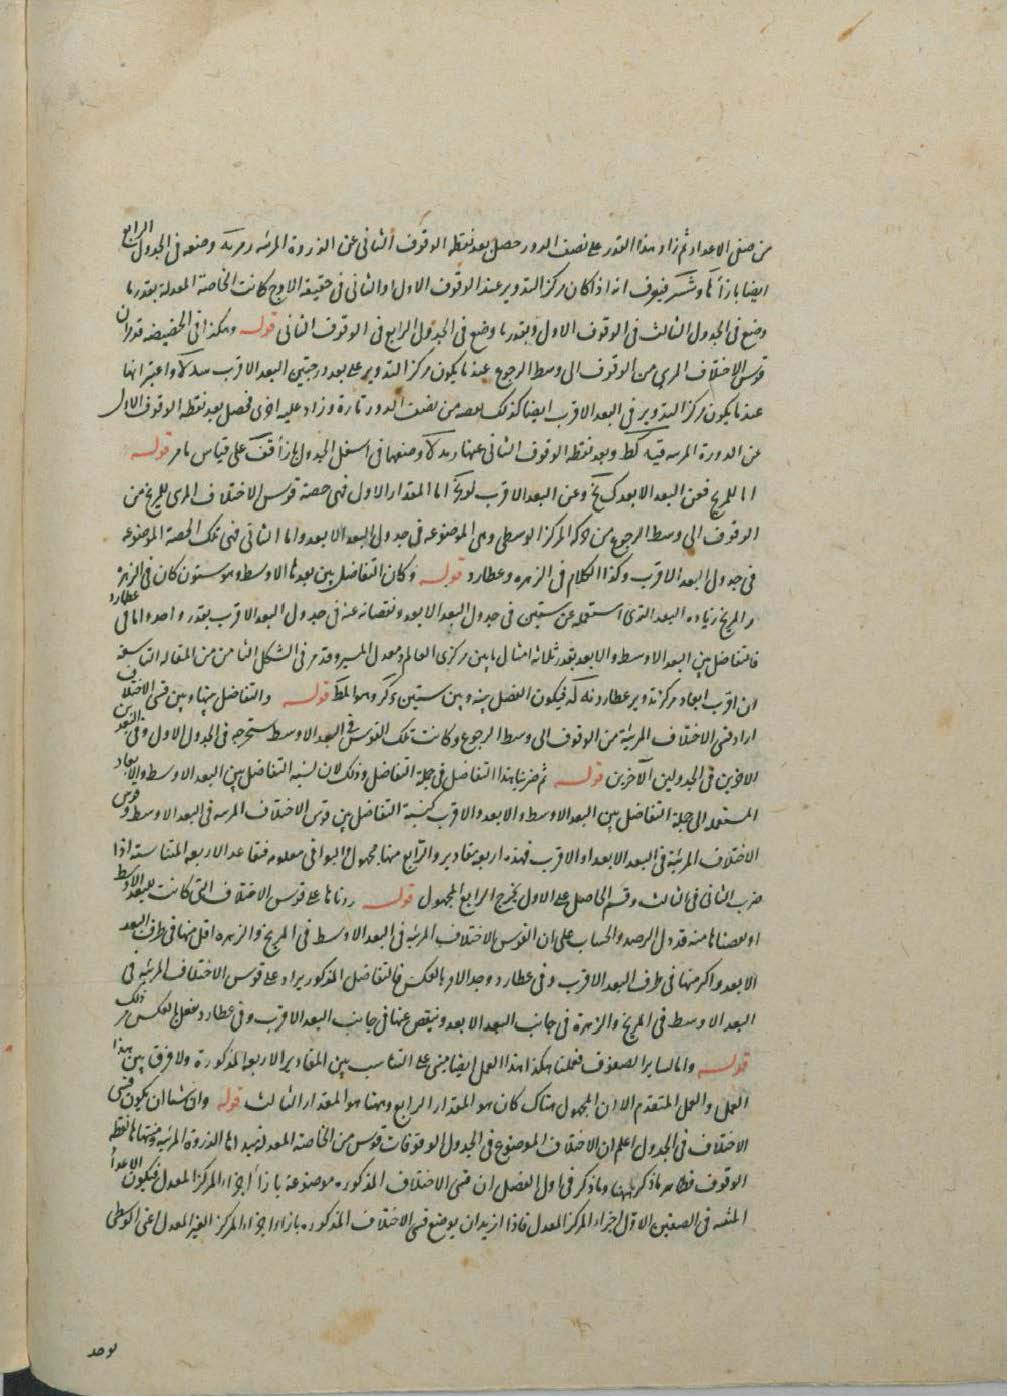 من صفى الاعداد ثم زاد هذا القدر على نصف الدور حصل بعد نقطه الوقوف الثانى عن الذروة المرئيه وضعه فى الجدول الرابع
ايضا بازائها فيعرف انه اذا كان مركز التدوير عند الوقوف الاول او الثانى فى حقيقة الاوج كانت الخاصة المعدلة بقدر ما
وضع فى الجدول الثالث فى الوقوف الاول وبقدر ما وضع فى الجدول الرابع فى الوقوف الثانى قوله وهكذا فى الحضيض قدر ان
قوس الاختلاف المرئى من الوقوف الى وسط الرجوع عند ما يكون مركز التدوير على بعد درجتين البعد الاقرب واعتبر انها
عند ما يكون مركز التدوير فى البعد الاقرب ايضا كذلك من نصف الدور تارة وزاد عليه اخرى فحصل بعد نقطه الوقوف الاول
عن الذروة المرئيه وبعد نقطه الوقوف الثانى عنها وضعها فى اسفل الجدول بازاء على قياس ما مر قوله
اما للمريخ فعن البعد الابعد وعن البعد الاقرب اما المقدار الاول فهى حصة قوس الاختلاف المرئى للمريخ من
الوقوف الى وسط الرجوع من حركة المركز الوسطى وهى الموضوعه فى جدول البعد الابعد واما الثانى فهى تلك الحصة الموضوعه
فى جدول البعد الاقرب وكذا الكلام فى الزهره وعطارد قوله وكان التفاضل بين بعدها الاوسط وهو ستون كان فى الزهرة
والمريخ زياده البعد الذى استعمله عن ستين فى جدول البعد الابعد ونقصانه عنه فى جدول البعد الاقرب بقدر واحد واما فى عطارد
فالتفاضل بين البعد الاوسط والابعد بقدر ثلاثه امثال ما بين مركزى العالم ومعدل المسير وقد مر فى الشكل الثامن من المقاله التاسعة
ان اقرب ابعاد مركز تدوير عطارد فيكون الفضل بينه وبين ستين وهو المط قوله والتفاضل بينها وبين قسى الاختلاف
اراد قسى الاختلاف المرئية من الوقوف الى وسط الرجوع وكانت تلك القوس فى البعد الاوسط مستخرجه فى الجدول الاول وفى البعدين
الاخرين فى الجدولين الآخرين قوله ثم ضربنا هذا التفاضل فى جملة التفاضل وذلك لان نسبة التفاضل بين البعد الاوسط والابعاد
المستعمله الى جملة التفاضل بين البعد الاوسط والابعد والاقرب كنسبة التفاضل بين قوس الاختلاف المرئيه فى البعد الاوسط وقوس
الاختلاف المرئية فى البعد الابعد او الاقرب فهذه اربعه مقادير والرابع منها مجهول والبواقى معلومه فبقاعدة الاربعه المتناسبة اذا
ضرب الثانى فى الثالث وقسم الحاصل على الاول يخرج الرابع المجهول قوله زدناها على قوس الاختلاف التى كانت للبعد الاوسط
او نقصناها منه قد دل الرصد والحساب على ان القوس الاختلاف المرئيه فى البعد الاوسط فى المريخ والزهره اقل منها فى طرف البعد
الابعد واكبر منها فى طرف البعد الاقرب وفى عطارد وجد الامر بالعكس فالتفاضل المذكور يزاد على قوس الاختلاف المرئيه فى
البعد الاوسط فى المريخ والزهرة فى جانب البعد الابعد وينقص عنها فى جانب البعد الاقرب وفى عطارد يفعل بالعكس من ذلك
قوله واما لساير الصفوف فعلنا هكذا هذا العمل ايضا مبنى على التناسب بين المقادير الاربعه المذكورة ولا فرق بين هذا
العمل والعمل المتقدم الا ان المجهول هناك كان هو المقدار الرابع وههنا هو المقدار الثالث قوله وان شئنا ان يكون قسى
الاختلاف فى الجدول اعلم ان الاختلاف الموضوع فى الجدول الوقوفات قوس من الخاصة المعدلة مبداها الذروة المرئيه ومنتهاها نقطة
الوقوف فظاهر ما ذكر ههنا وما ذكر فى اول الفصل ان قسى الاختلاف المذكوره موضوعة بازاء اجزاء المركز المعدل فيكون الاعداد
المثبته فى الصفين الاولى اجزاء المركز المعدل فاذا اريد ان يوضع قسى الاختلاف المذكوره بازاء اجزاء المركز الغير المعدل اعنى الوسطى
يوحد